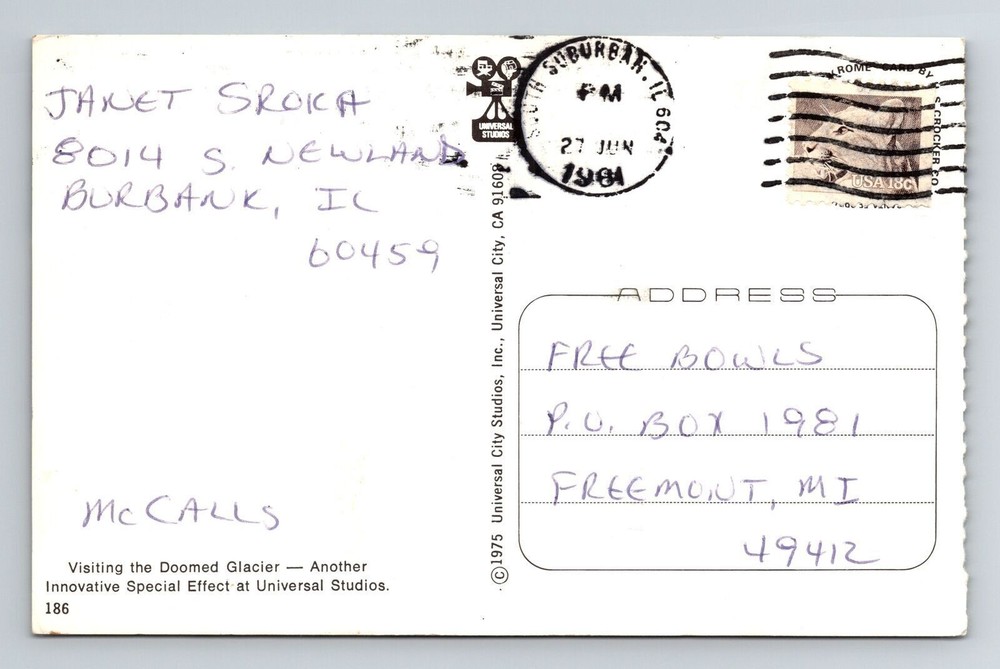 JANET SROKA
8014 S. NEWLAND
BURBANK, IL
60459
McCALLS
Visiting the Doomed Glacier — Another
Innovative Special Effect at Universal Studios.
186
UNIVERSAL
STUDIOS
©1975 Universal City Studios, Inc., Universal City, CA 91608
SOUTH SUBURBAN, IL
PM
27 JUN
1981
KROME CARD BY
S. CROCKER CO.
USA 18c
ADDRESS
FREE BOWLS
P.O. BOX 1981
FREEMONT, MI
49412